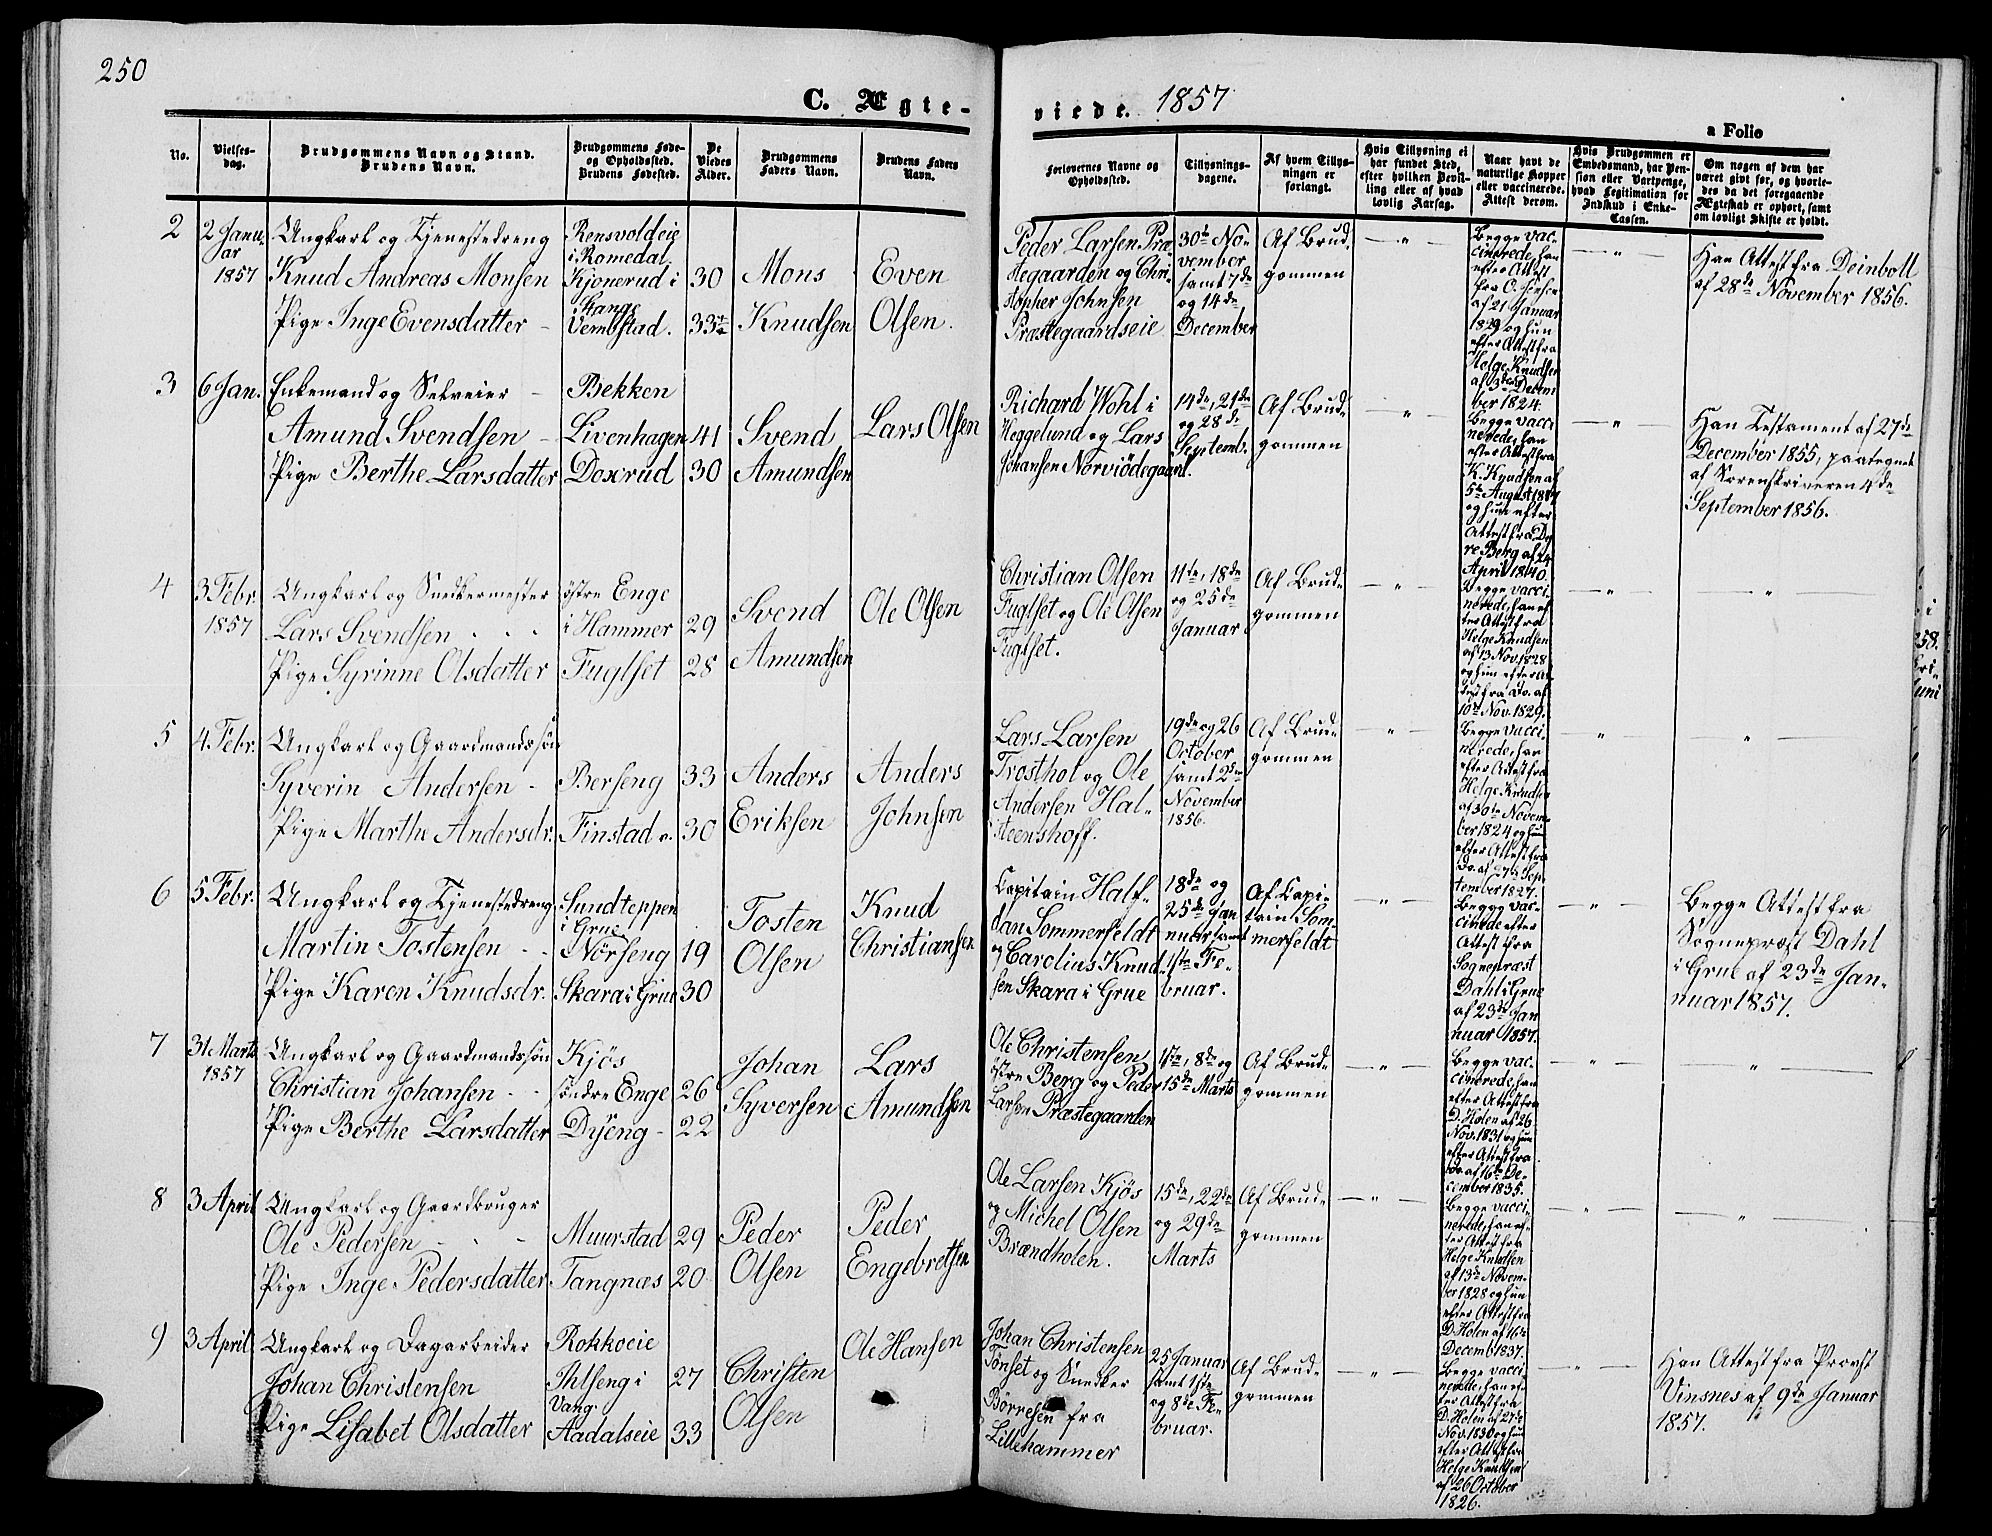 250
C. Ægte-
viede. 1857
a Folio
No.
Vielses-
dag.
Brudgommens Navn og Stand.
Brudens Navn.
Brudgommens Føde-
og Opholdssted.
Brudens Fødested.
De
Viedes
Alder.
Brudgommens
Faders Navn.
Brudens Faders
Navn.
Forlovernes Navne og
Opholdssted.
Tillysnings-
dagene.
Af hvem Tillys-
ningen er
forlangt.
Hvis Tillysning ei
har fundet Sted,
efter hvilken Bevil-
ling eller af hvad
lovlig Aarsag.
Naar havt de
naturlige Kopper
eller vaccinerede.
Attest derom.
Hvis Brudgommen er
Embedsmand, har Pen-
sion eller Vartpenge,
hvad Legitimation for
Indskud i Enke-
Cassen.
Om nogen af dem har
været givt før, og hvorle-
des da det foregaaende
Ægteskab er ophørt, samt
om lovligt Skifte er holdt.
2
2 Janu-
ar
1857
Ungkarl og Tjenestedreng
Knud Andreas Monsen
Pige Inge Evensdatter
Rensvoldeie
i Romedal
Kjonerud i
Stange
Vembstad.
30
33
Mons
Knudsen
Even
Olsen.
Peder Larsen Præ-
stegaarden og Chri-
stopher Johnsen
Præstegaardseie
30te No-
vember
samt 7de
og 14de
December
Af Brud-
gommen
Begge vac-
cinerede, han
efter Attest
fra O.
af 21 Januar
1829 og hun
efter Attest fra
Helge Knudsen
af 3die Decem
ber 1824.
Han Attest fra Deinboll
af 28de November 1856.
3
6 Jan.
Enkemand og Selveier
Amund Svendsen
Pige Berthe Larsdatter
Bekken
Livenhagen
Doxrud
41
30
Svend
Amundsen
Lars Olsen
Richard Wohl i
Heggelund og Lars
Johansen Norviödegaard.
14de, 21de
og 28de
Septemb.
Af Brud-
gommen
Begge vacci
nerede, han
efter Attest fra
K. Knudsen af
5te August 1817
og hun efter
Attest fra Do
re Berg af 24
April 1840.
Han Testament af 27de
December 1855, paategnet
af Sorenskriveren 4de
September 1856.
4
3 Febr.
1857
Ungkarl og Snedkermester
Lars Svendsen
Pige Syrinne Olsdatter
östre Enge
i Hammer
Fuglset
29
28
Svend
Amundsen
Ole Olsen
Christian Olsen
Fuglset og Ole Olsen
Fuglset.
11te, 18de
og 25de
Januar
Af Brud-
gommen
Begge vacci-
nerede, han ef-
ter Attest fra
Helge Knudsen
af 13 Nov. 1828
og hun efter At-
test fra Do. af
10de Nov. 1829.
5
4 Febr.
Ungkarl og Gaardmandssøn
Syverin Andersen
Pige Marthe Andersdr.
Berseng
Finstad
33
30
Anders
Eriksen
Anders
Johnsen
Lars Larsen
Trosthol og Ole
Andersen Hal-
steenshoff.
19de og 26
October
samt 2den
November
1856.
Af Brud-
gommen
Begge vacci-
nerede, han
efter Attest fra
Helge Knudsen
af 30te Novem-
ber 1824 og hun
efter Attest fra
Do. af 27de Sep-
tember 1827.
6
5 Febr.
Ungkarl og Tjenestedreng
Martin Tostensen
Pige Karen Knudsdr.
Sundteppen
i Grue
Nörseng
Skara i Grue
19
30
Tosten
Olsen
Knud
Christiansen
Capitain Half-
dan Sommerfeldt
og Carolius Knud
sen Skara i Grue
18de og
25de Jan
nuar samt
1ste Fe-
bruar.
Af Capi-
tain Som-
merfeldt
Begge vac-
cinede efter
Attest fra
Sognepræst
Dahl i Grue
af 23de Jan
nuar 1857.
Begge Attest fra
Sognepræst Dahl
i Grue af 23de Jan-
nuar 1857.
7
31 Marts
1857
Ungkarl og Gaardmandssøn
Christian Johansen
Pige Berthe Larsdatter
Kjös
söndre Enge
Dyseng
26
22
Johan
Syversen
Lars
Amundsen
Ole Christensen
östre Berg og Peder
Larsen Præstegaarden
1ste, 8de og
15de Marts
Af Brud-
gommen
Begge vac-
cinerede, han
efter Attest fra
D. Holen af 26
Nov. 1831 og hun
efter Attest fra
Do. af 16de De-
cember 1835.
8
3 April
Ungkarl og Gaardbruger
Ole Pedersen
Pige Inge Pedersdatter
Muurstad
Tangnæs
29
20
Peder
Olsen
Peder
Engebretsen
Ole Larsen Kjös
og Michel Olsen
Brændholen.
15de, 22de
og 29de
Marts
Af Brud-
gommen
Begge vacci-
nerede, han ef-
ter Attest fra
Helge Knudsen
af 13de Novem-
ber 1828 og hun
efter Attest fra
D. Holen af 16de
Decemb 1837.
9
3 April
Ungkarl og Dagarbeider
Johan Christensen
Pige Lisabet Olsdatter
Rokkoeie
Ihlseng i
Vang.
Aadalseie
27
33
Christen
Olsen
Ole Hansen
Johan Christensen
Tönset og Snedker
Börresen fra
Lillehammer
25 Januar
samt 1ste
og 8de Fe-
bruar.
Af Brud-
gommen
Begge vacci-
nerede, han ef-
ter Attest fra
D. Holen af 27de
Nov. 1830 og hun
efter Attest fra
Helge Knudsen
af 26 October
1826.
Han Attest fra Provst
Vinsnes af 9de Januar
1857.